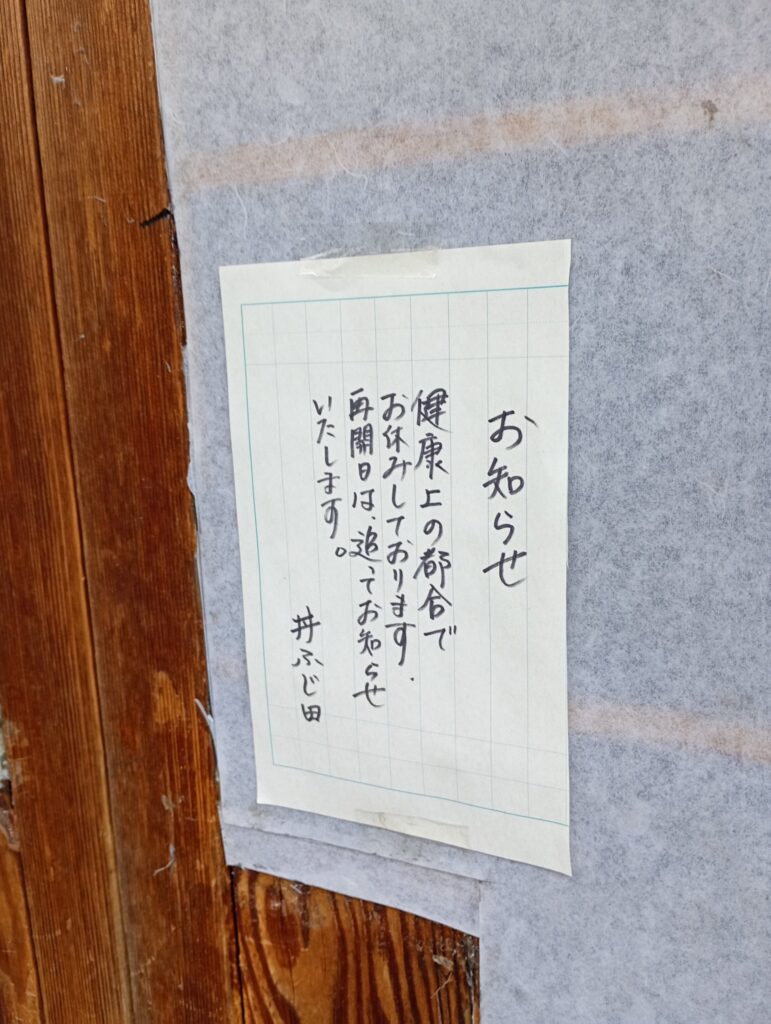 お知らせ
健康上の都合で
お休みしております.
再開日は、追ってお知らせ
いたします。
丼ふじ田